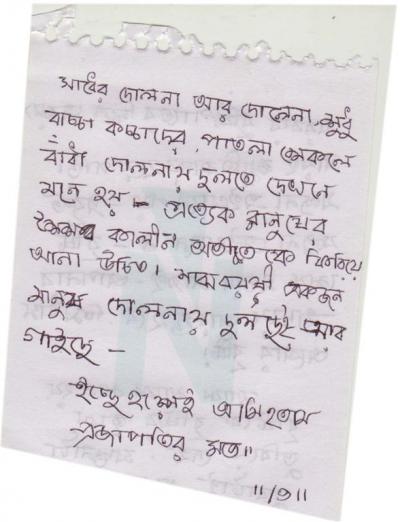 সাধের দোলনা আর দোলেনা, শুধু
বাচ্চা কাচ্চাদের, পাতলা সেকলে
বাঁধা দোলনায় দুলতে দেখলে
মনে হয় — প্রত্যেক মানুষের
শৈশব কালীন অতীতকে ফিরিয়ে
আনা উচিত। মধ্যবয়সী একজন
মানুষ দোলনায় দুলছেই আর
গাইছে —
ইচ্ছে হলেই আমি হতাম
প্রজাপতির মত॥
॥৩॥